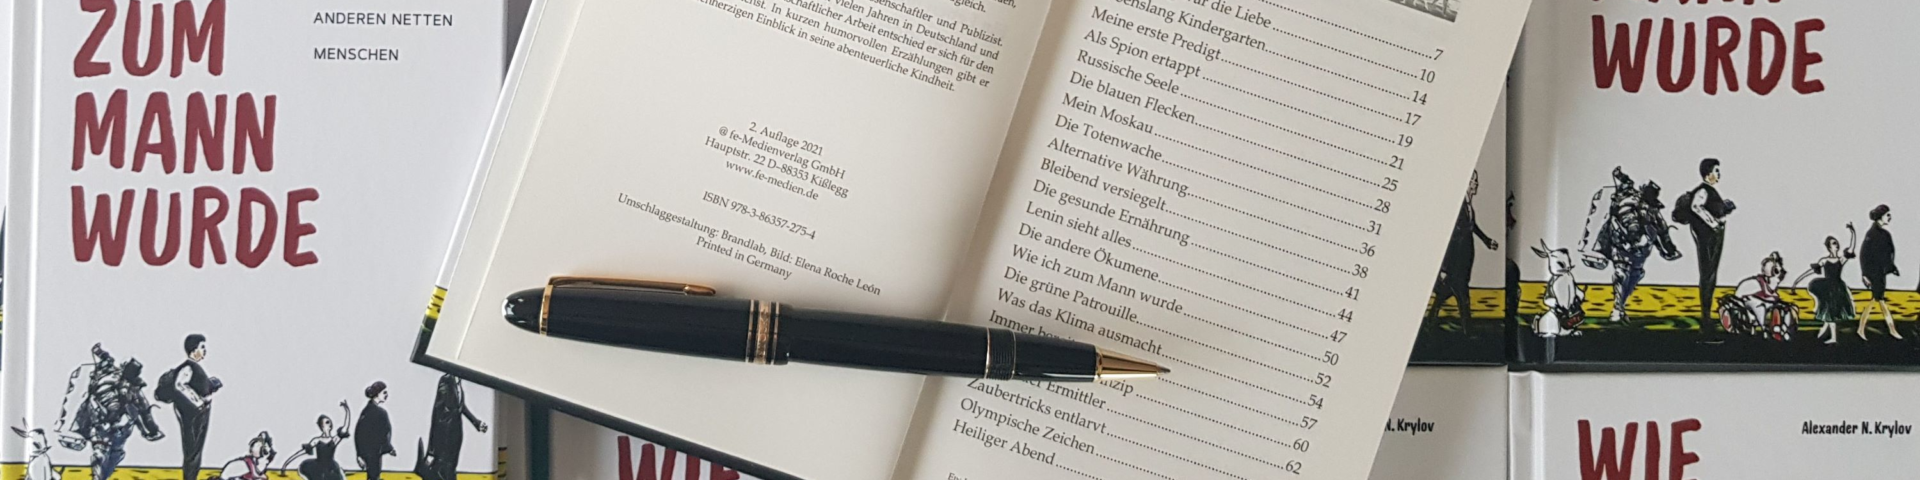 ZUM
MANN
WURDE
ANDEREN NETTEN
MENSCHEN
vielen Jahren in Deutschland und
In kurzen humorvollen Erzählungen gibt er
Einblick in seine abenteuerliche Kindheit.
2. Auflage 2021
@ fe-Medienverlag GmbH
Hauptstr. 22 D–88353 Kißlegg
www.fe-medien.de
ISBN 978-3-86357-275-4
Umschlaggestaltung: Brandlab, Bild: Elena Roche León
Printed in Germany
für die Liebe 7
Kindergarten 10
Meine erste Predigt 14
Als Spion ertappt 17
Russische Seele 19
Die blauen Flecken 21
Mein Moskau 25
Die Totenwache 28
Alternative Währung 31
Bleibend versiegelt 36
Die gesunde Ernährung 38
Lenin sieht alles 41
Die andere Ökumene 44
Wie ich zum Mann wurde 47
Die grüne Patrouille 50
Was das Klima ausmacht 52
Immer 54
Ermittler 57
Zaubertricks entlarvt 60
Olympische Zeichen 62
Heiliger Abend
WIE
N. Krylov
WURDE
WIE
Alexander N. Krylov